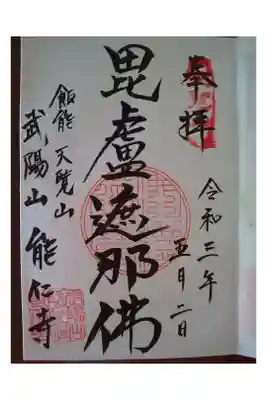 奉拝
令和三年
五月二日
毘盧遮那佛
飯能 天覧山
武陽山 能仁寺